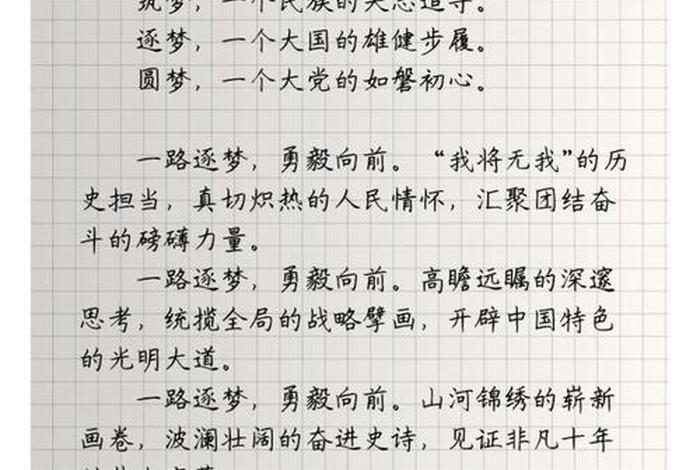 筑梦，一个民族的矢志追寻。
逐梦，一个大国的雄健步履。
圆梦，一个大党的如磐初心。
一路逐梦，勇毅向前。“我将无我”的历
史担当，真切炽热的人民情怀，汇聚团结奋
斗的磅礴力量。
一路逐梦，勇毅向前。高瞻远瞩的深邃
思考，统揽全局的战略擘画，开辟中国特色
的光明大道。
一路逐梦，勇毅向前。山河锦绣的崭新
画卷，波澜壮阔的奋进史诗，见证非凡十年